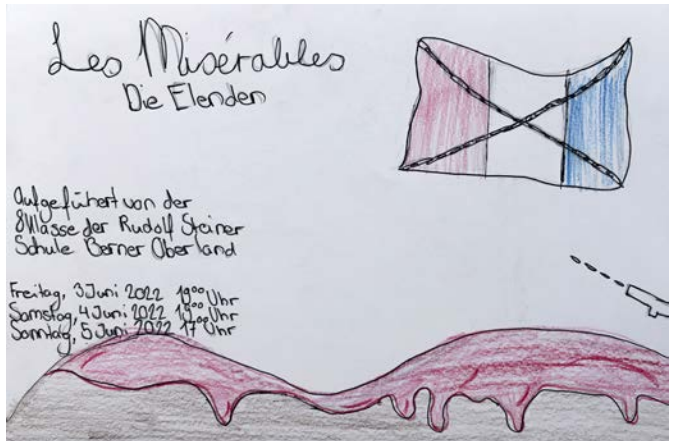 Les Misérables
Die Elenden
Aufgeführt von der
8Klasse der Rudolf Steiner
Schule Berner Oberland
Freitag, 3 Juni 2022 19⁰⁰ Uhr
Samstag, 4 Juni 2022 19⁰⁰ Uhr
Sonntag, 5 Juni 2022 17⁰⁰ Uhr